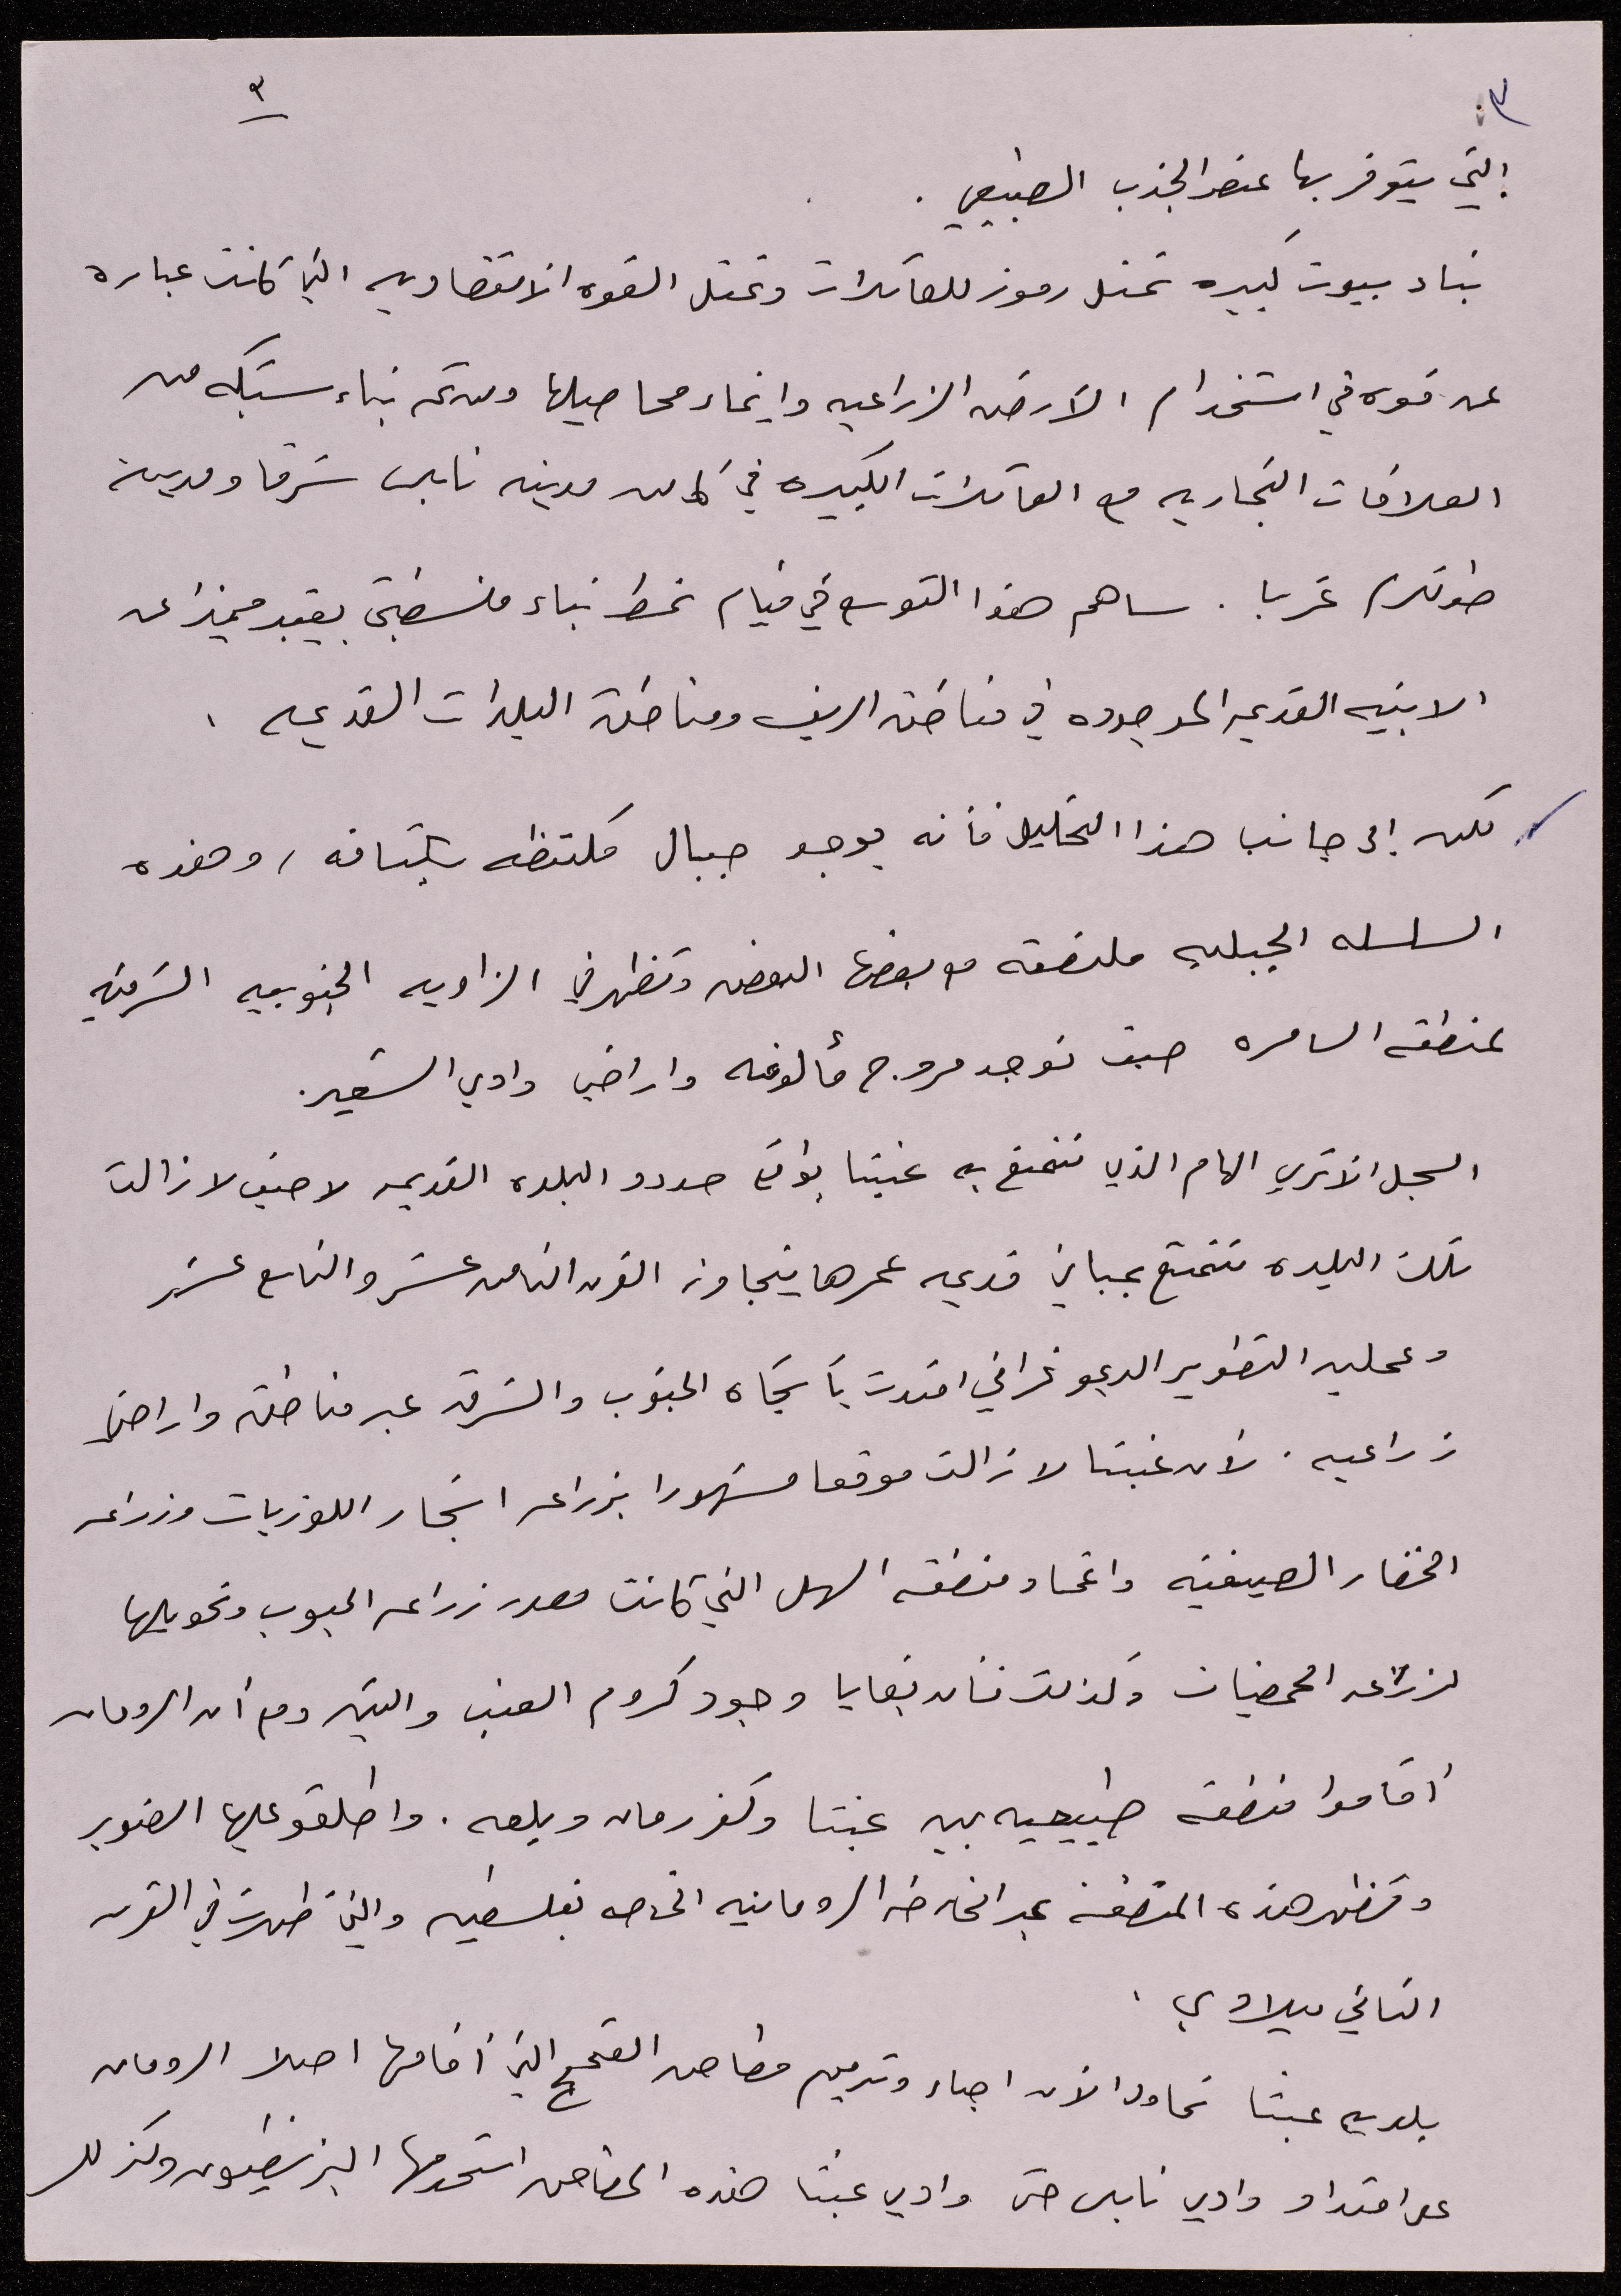 ٣
٣
التي يتوفر بها عنصر الجذب الطبيعي .
بناء بيوت كبيره تمثل رموز للعائلات وتمثل القوه الاقتصاديه التي كانت عباره
عن قوه في استخدام الأرض الزراعيه وانماء محاصيلها ومن ثم بناء شبكه من
العلاقات التجاريه مع العائلات الكبيره في كل من مدينه نابلس شرقا ومدينة
طولكرم غربا . ساهم هذا التوسع في قيام نمط بناء فلسطيني يعتبر مميزا عن
الابنيه القديمه الموجوده في مناطق الريف ومناطق البلدات القديمه .
لكن إلى جانب هذا التحليل فأنه يوجد جبال مكتظه بكثافه ، وهذه
السلسله الجبليه ملتصقة مع بعضها البعض وتظهر في الزاويه الجنوبيه الشرقيه
لمنطقه السامره حيث توجد مروج مألوفه واراضي وادي الشعير.
السجل الاثري الهام الذي تتمتع به عنبتا يواقع حدود البلده القديمه لا حيث لا زالت
تلك البلده تتمتع بمباني قديمه عمرها يتجاوز القرن الثامن عشر والتاسع عشر
وعمليه التطوير الديمو غرافي امتدت بأتجاه الجنوب والشرق عبر مناطق واراضي
زراعيه . لأن عنبتا لا زالت موقعا مشهورا بزراعه اشجار اللوزيات وزراعه
الخضار الصيفيه واعتماد منطقه السهل التي كانت مصدر زراعه الحبوب وتحويلها
لزراعه الحمضيات وكذلك فأن بقايا وجود كروم العنب والتين ومع أن الرومان
أقاموا منطقه طبيعيه بين عنبتا وكفر رمان وبلعه . واطلقو عليها الصنوبر
وتظهر هذه المنطقة عبر الخارطه الرومانيه الخاصه بفلسطين والتي ظهرت في القرن
الثاني ميلادي .
بلديه عنبتا تحاول الان احياء وترميم مطاحن القمح التي أقامها اصلا الرومان
على امتداد وادي نابلس حتى وادي عنبتا هذه المطاحن استخدمها البيزنطيون وكذلك